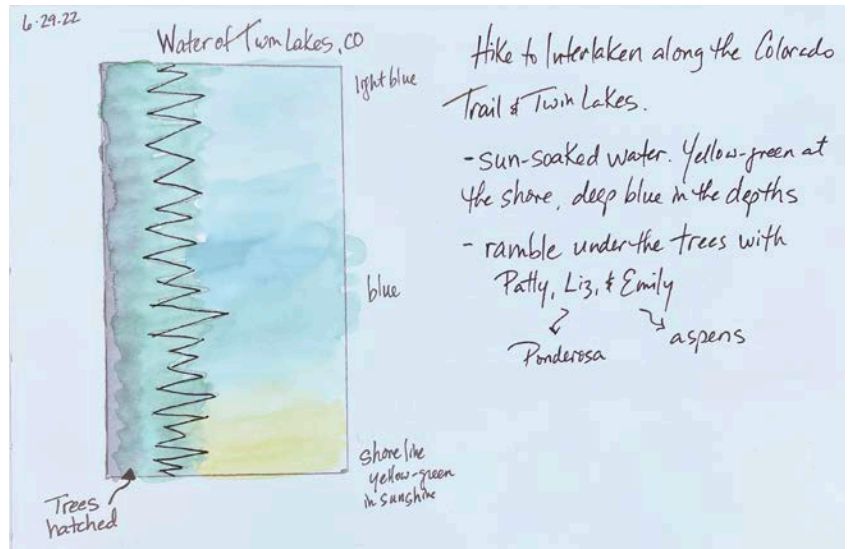 6-29-22
Water of Twin Lakes, CO
light blue
blue
shoreline
yellow-green
in sunshine
Trees
hatched
Hike to Interlaken along the Colorado
Trail & Twin Lakes.
- sun-soaked water. Yellow-green at
the shore, deep blue in the depths
- ramble under the trees with
Patty, Liz, & Emily
Ponderosa
aspens